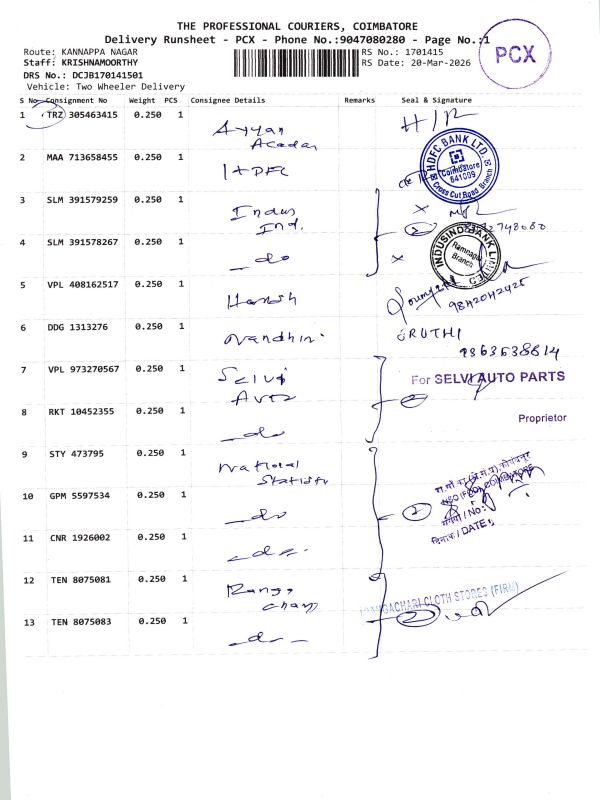 THE PROFESSIONAL COURIERS, COIMBATORE
Delivery Runsheet - PCX - Phone No.:9047080280 - Page No.:1
Route: KANNAPPA NAGAR
RS No.: 1701415
Staff: KRISHNAMOORTHY
RS Date: 20-Mar-2026
DRS No.: DCJB170141501
Vehicle: Two Wheeler Delivery
PCX
S No Consignment No Weight PCS Consignee Details Remarks Seal & Signature
1 TRZ 305463415 0.250 1 Ayyan H/R
2 MAA 713658455 0.250 1 HDFC
HDFC BANK LTD.
Coimbatore
641009
Cross Cut Road Branch
3 SLM 391579259 0.250 1 Indus
Ind.
4 SLM 391578267 0.250 1 do
INDUSIND BANK LIMITED
Ramnagar
Branch
5 VPL 408162517 0.250 1 Harish
9842042425
6 DDG 1313276 0.250 1 Nandhini SRUTHI
9363638814
7 VPL 973270567 0.250 1 Selvi
For SELVI AUTO PARTS
Auto
8 RKT 10452355 0.250 1 do
Proprietor
9 STY 473795 0.250 1 National
10 GPM 5597534 0.250 1 do 2
/ No:
दिनांक / DATE:
11 CNR 1926002 0.250 1 do
12 TEN 8075081 0.250 1 Ranga
CLOTH STORES (FIRM)
13 TEN 8075083 0.250 1 do 2